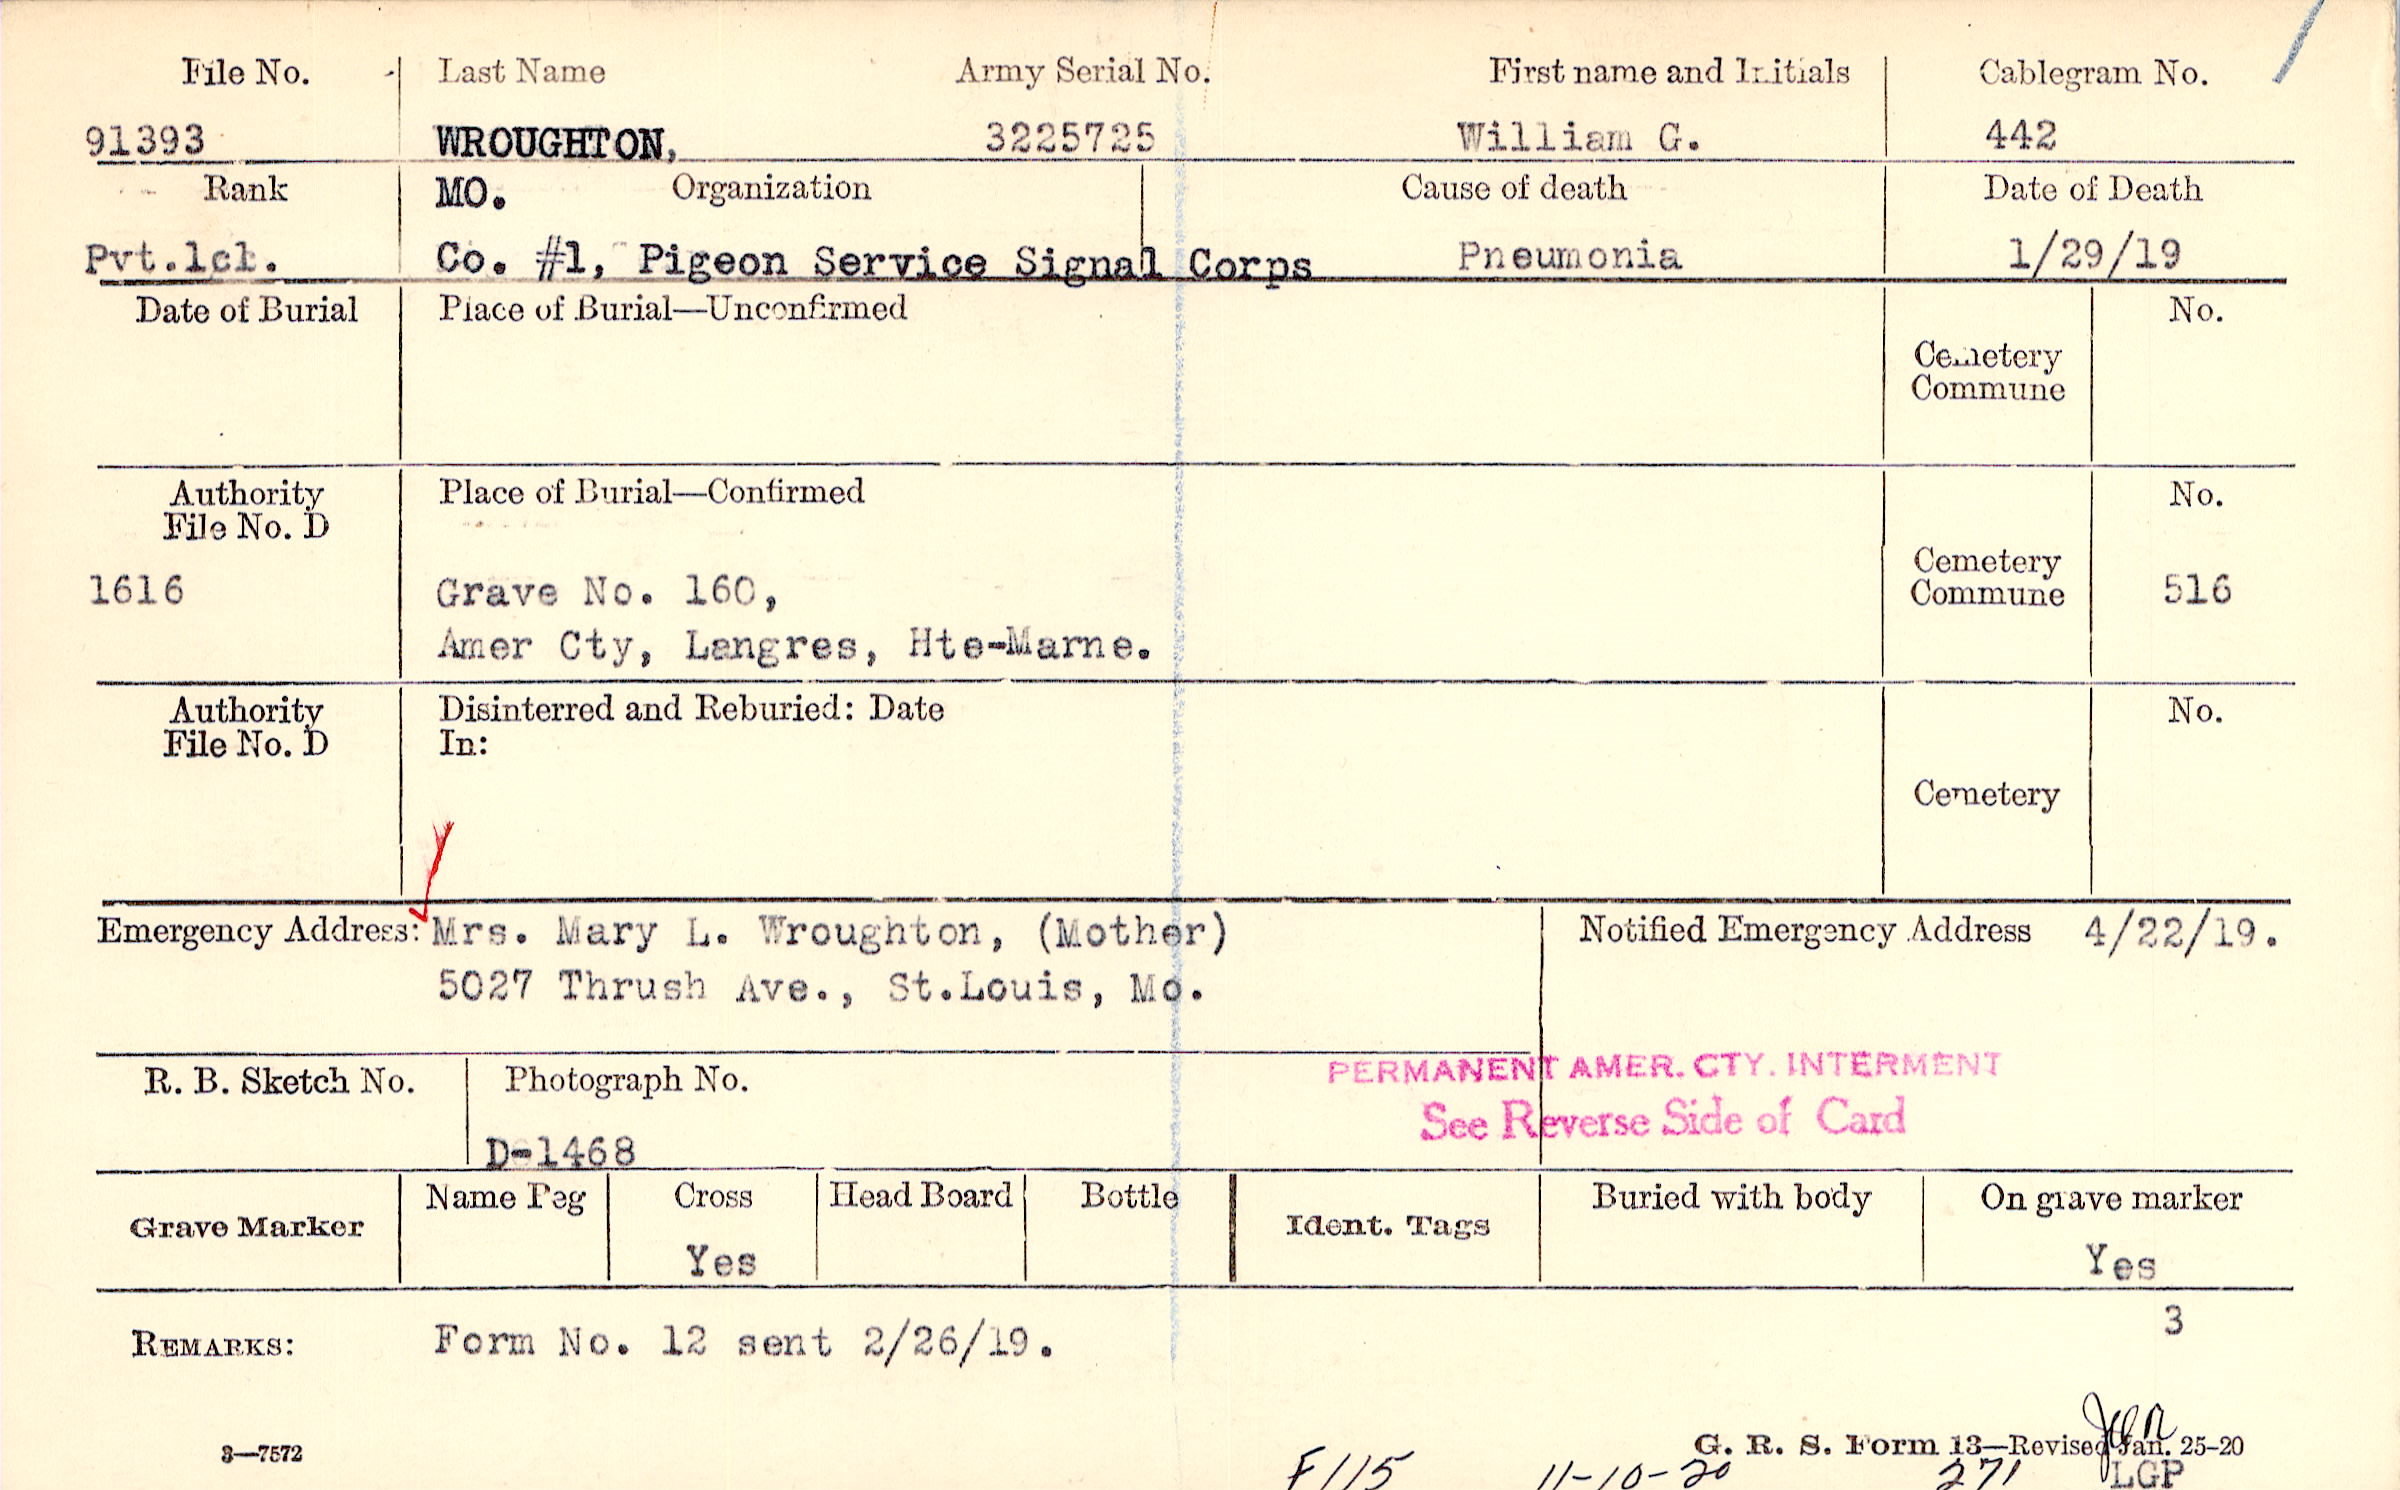 File No. Last Name Army Serial No. First name and Initials Cablegram No.
91393 WROUGHTON, 3225725 William G. 442
Rank MO. Organization Cause of death Date of Death
Pvt.1cl. Co. #1, Pigeon Service Signal Corps Pneumonia 1/29/19
Date of Burial Place of Burial—Unconfirmed No.
Cemetery
Commune
Authority Place of Burial—Confirmed No.
File No. D
Cemetery
1616 Grave No. 160, Commune 516
Amer Cty, Langres, Hte-Marne.
Authority Disinterred and Reburied: Date No.
File No. D In:
Cemetery
Emergency Address: Mrs. Mary L. Wroughton, (Mother) Notified Emergency Address 4/22/19.
5027 Thrush Ave., St.Louis, Mo.
PERMANENT AMER. CTY. INTERMENT
R. B. Sketch No. Photograph No.
See Reverse Side of Card
D-1468
Name Peg Cross Head Board Bottle Buried with body On grave marker
Grave Marker Ident. Tags
Yes Yes
3
REMARKS: Form No. 12 sent 2/26/19.
3—7572 G. R. S. Form 13—Revised Jan. 25-20
F115 11-10-20 271 LGP